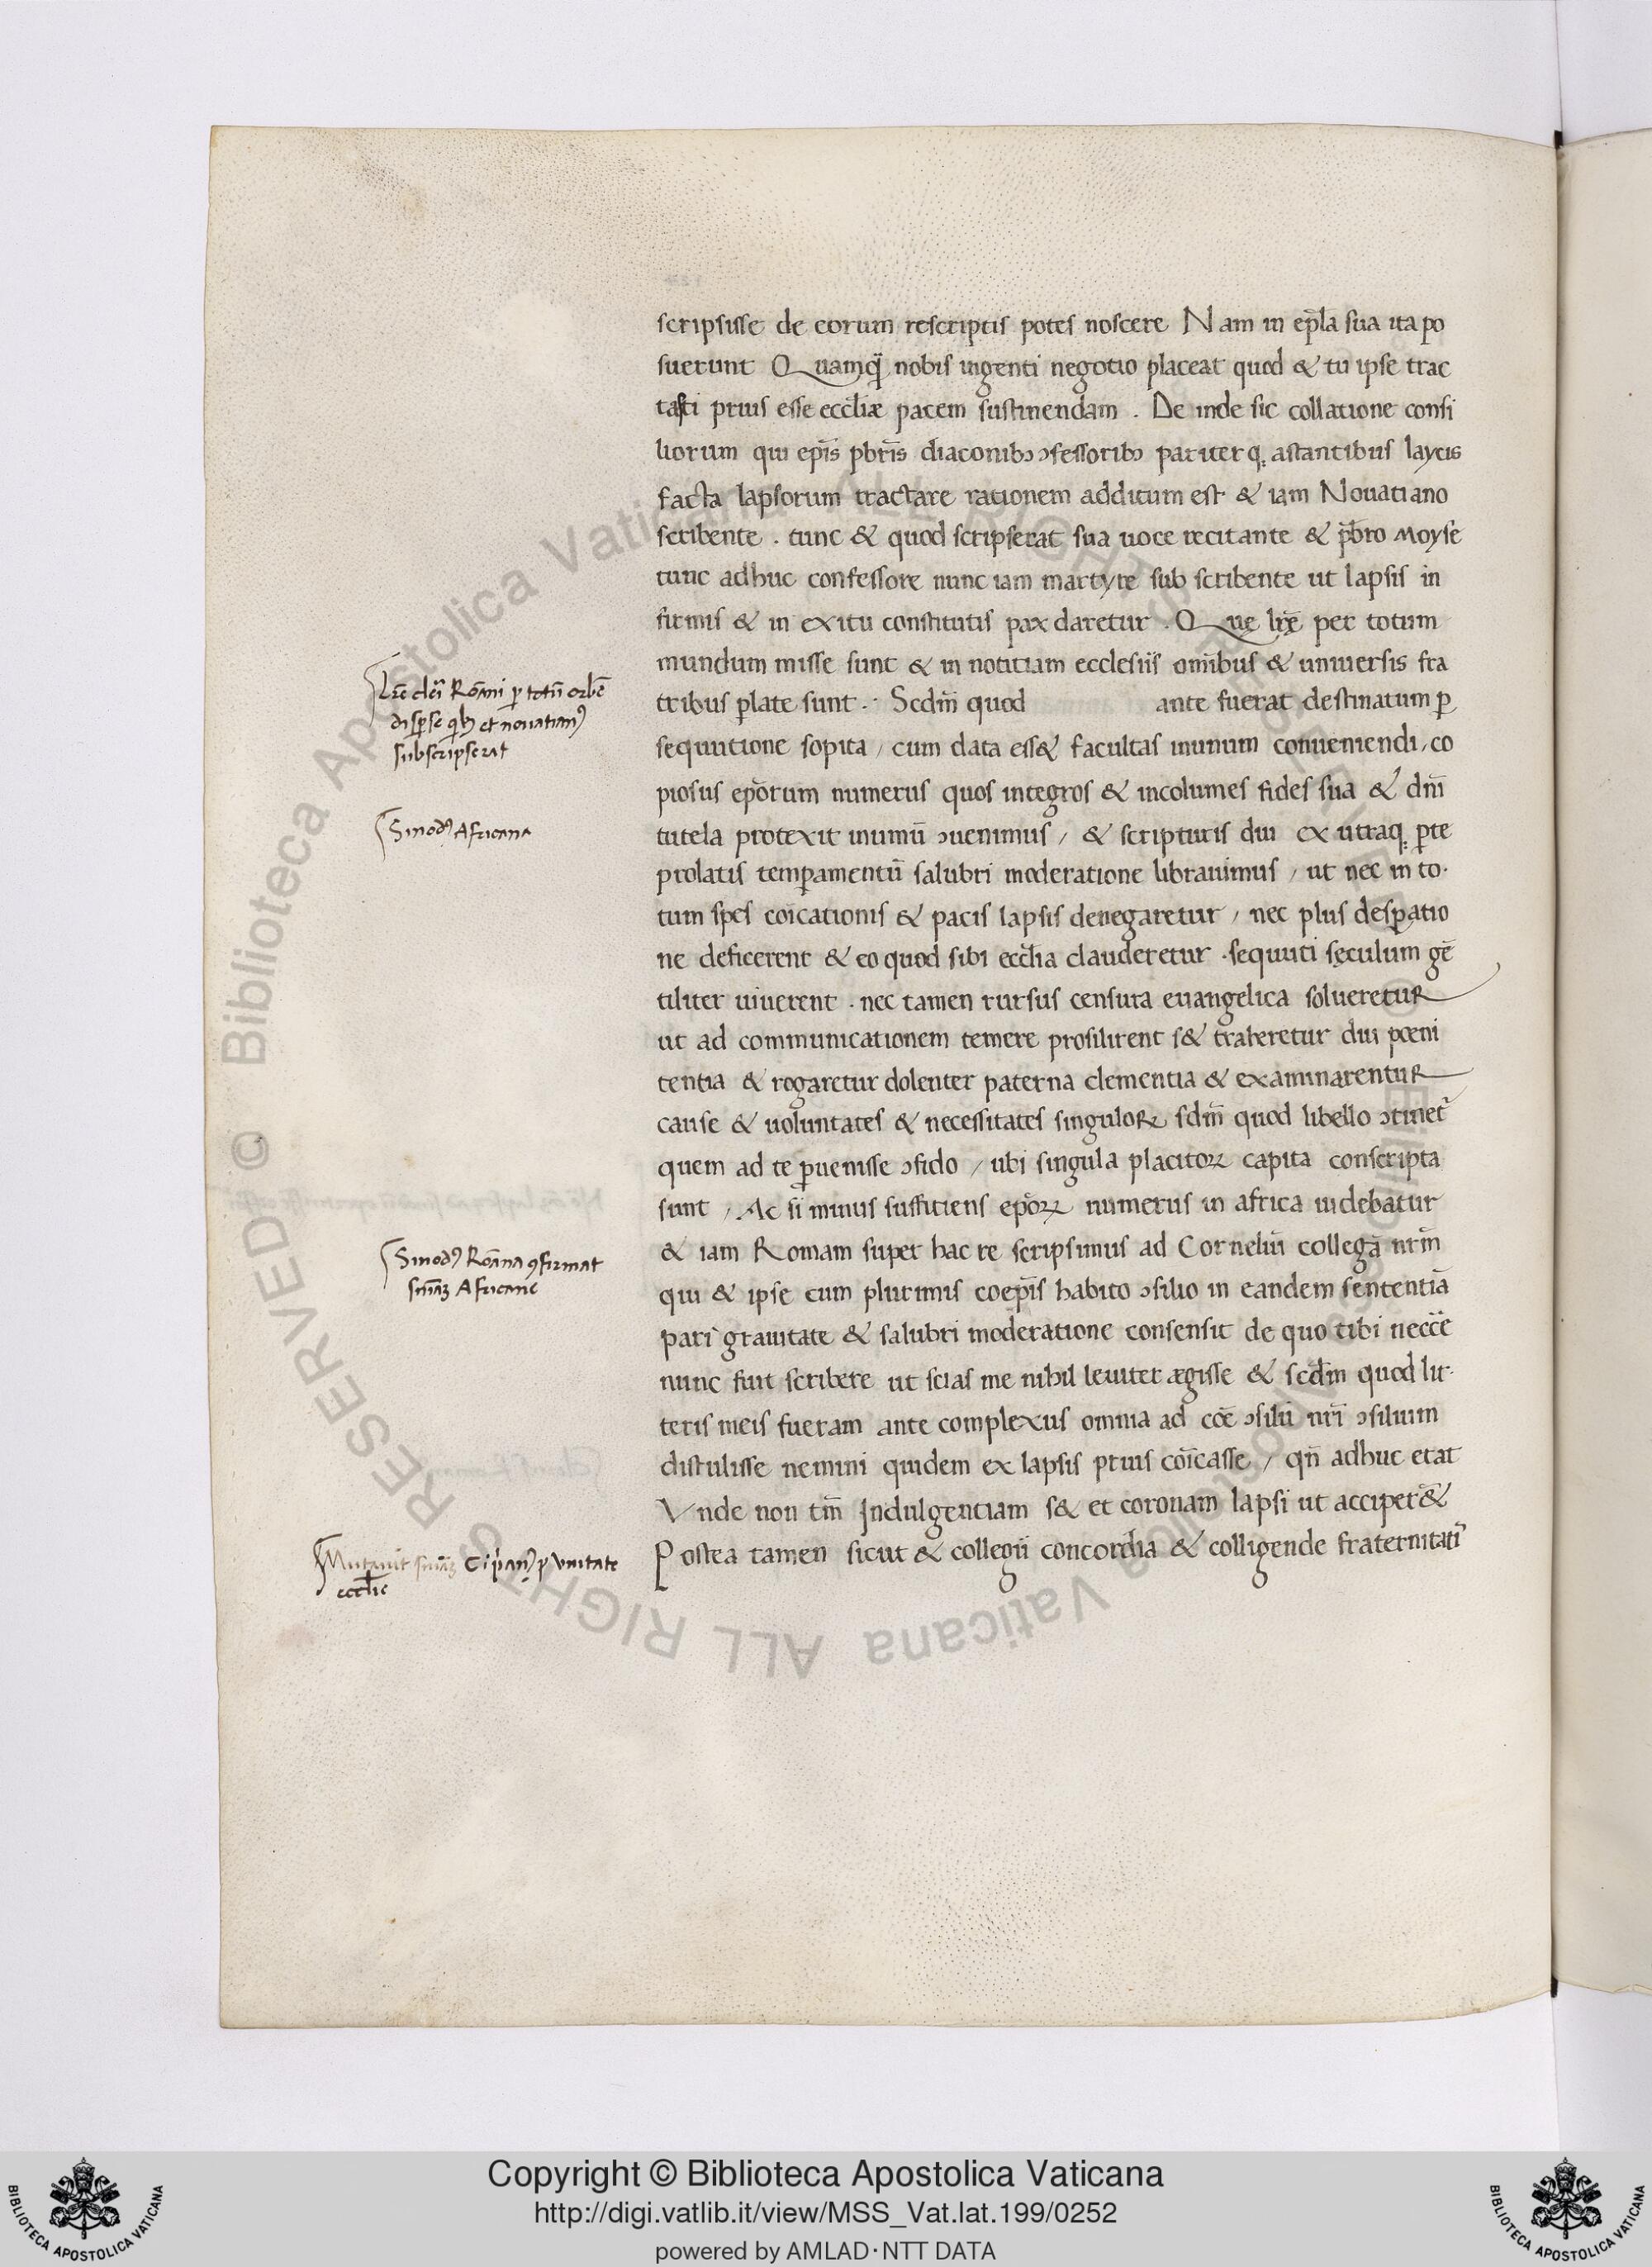 scripsisse de eorum rescriptis potes noscere Nam in ep̄la sua ita po
suerunt Quamq̃ nobis ingenti negotio placeat quod & tu ipse trac
tasti prius esse eccl̄iæ pacem sustinendam . De inde sic collatione consi
liorum qui ep̄is pbr̄is diaconibꝫ ɔfessoribꝫ pariterqꝫ astantibus laycis
facta lapsorum tractare rationem additum est & iam Nouatiano
scribente . tunc & quod scripserat sua uoce recitante & p̄bro Moyse
tunc adhuc confessore nunc iam martyre sub scribente ut lapsis in
firmis & in exitu constitutis pax daretur . Quę lr̄ę per totum
mundum misse sunt & in notitiam ecclesiis omībus & uniuersis fra
tribus ꝑlate sunt . Scdm̄ quod ante fuerat destinatum ꝑ
sequutione sopita / cum data ess& facultas inunum conueniendi / co
piosus ep̄orum numerus quos integros & incolumes fides sua & dn̄i
tutela protexit inunū ɔuenimus / & scripturis diu ex utraqꝫ ꝑte
prolatis temꝑamentū salubri moderatione librauimus / ut nec in to·
tum spes cōicationis & pacis lapsis denegaretur / nec plus desꝑatio
ne deficerent & eo quod sibi eccl̄ia clauderetur . sequuti sęculum gē
tiliter uiuerent . nec tamen rursus censura euangelica solueretur
ut ad communicationem temere prosilirent s& traheretur diu pœni
tentia & rogaretur dolenter paterna clementia & examinarentur
cause & uoluntates & necessitates singuloꝝ sdm̄ quod libello ɔtinet᷑
quem ad te ꝑuenisse ɔfido / ubi singula placitoꝝ capita conscripta
sunt / Ac si minus suffitiens ep̄oꝝ numerus in africa uidebatur
& iam Romam super hac re scripsimus ad Corneliū collegā nr̄m
qui & ipse cum plurimis coep̄is habito ɔsilio in eandem sententiā
pari grauitate & salubri moderatione consensit de quo tibi neccē
nunc fuit scribere ut scias me nihil leuiter ægisse & scdm̄ quod lit·
teris meis fueram ante complexus omnia ad cōe ɔsilii nr̄i ɔsilium
distulisse nemini quidem ex lapsis prius cōicasse / qn̄ adhuc erat
Vnde non tm̄ Indulgentiam s& et coronam lapsi ut acciper&
Postea tamen sicut & collegii concordia & colligende fraternitati᷑
Lr̄e cleri Romāni ꝑ totū orbē
disꝑse qibꝫ et nouatianꝰ
subscripserat
Sinodꝰ Africana
Sinodꝰ Romāna ꝯfirmat
sn̄iaꝫ Africane
Mutauit sn̄iaꝫ Cip̄anꝰ ꝓ vnitate
eccl̄ie
© Biblioteca Apostolica Vaticana ALL RIGHTS RESERVED
Copyright © Biblioteca Apostolica Vaticana
http://digi.vatlib.it/view/MSS_Vat.lat.199/0252
powered by AMLAD·NTT DATA
BIBLIOTECA APOSTOLICA VATICANA
BIBLIOTECA APOSTOLICA VATICANA